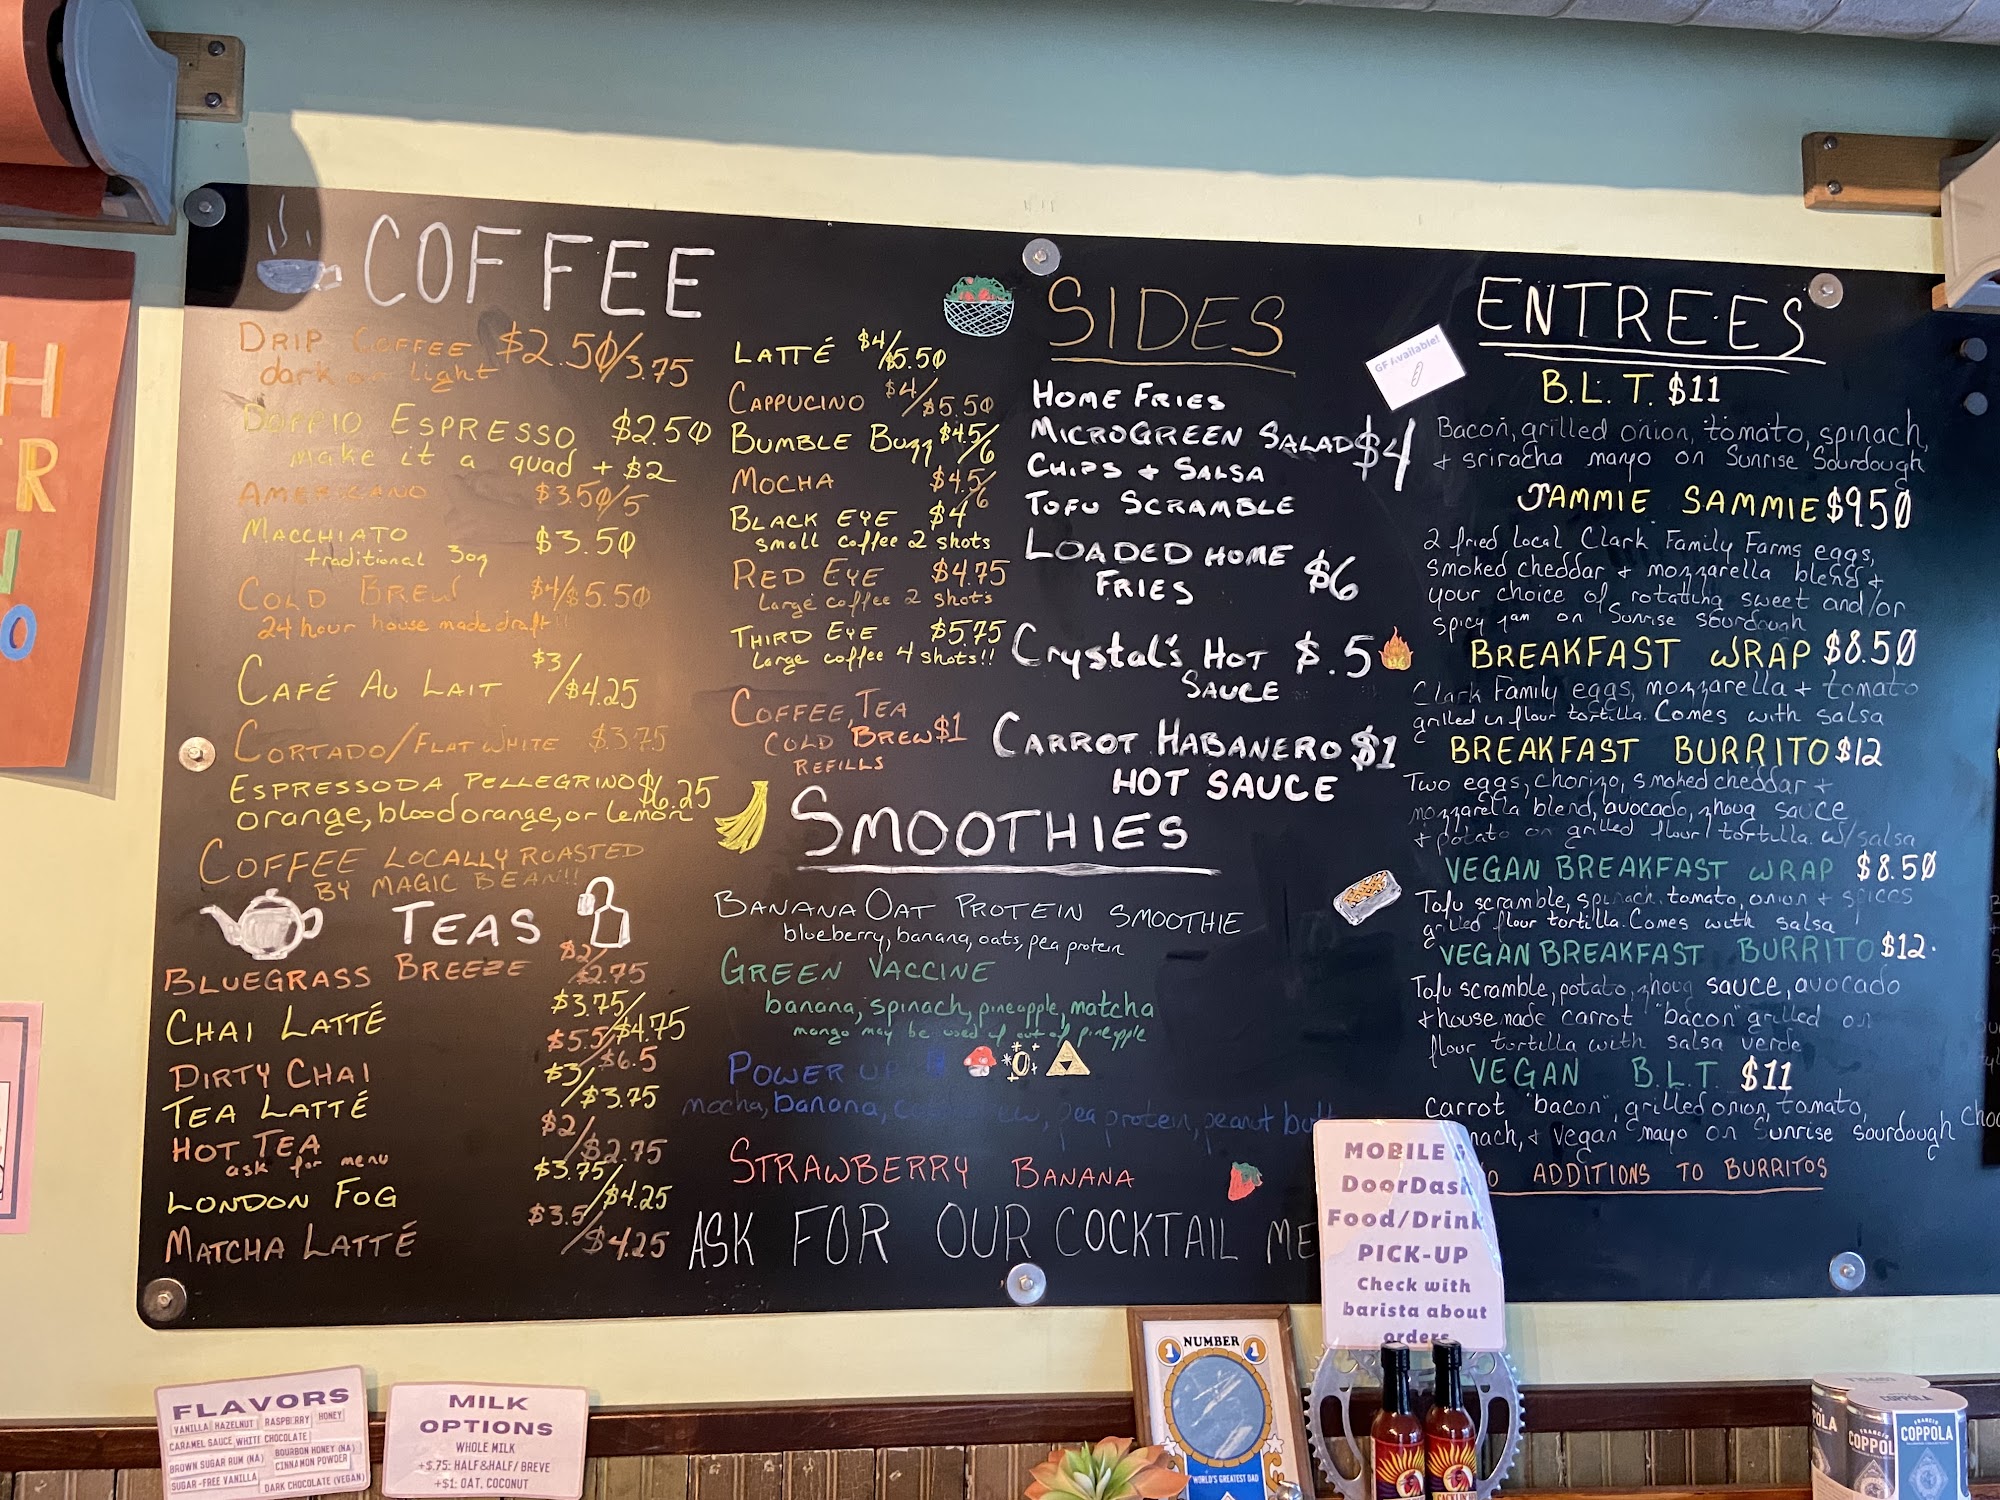 COFFEE
DRIP COFFEE $2.50/3.75
dark or light
DOPPIO ESPRESSO $2.50
make it a quad + $2
AMERICANO $3.50/5
MACCHIATO $3.50
traditional 3oz
COLD BREW $4/$5.50
24 hour house made draft!!
CAFÉ AU LAIT $3/$4.25
CORTADO/FLAT WHITE $3.75
ESPRESSODA PELLEGRINO $6.25
orange, blood orange, or lemon
COFFEE LOCALLY ROASTED
BY MAGIC BEAN!!
TEAS
BLUEGRASS BREEZE $2/$2.75
CHAI LATTÉ $3.75/$4.75
DIRTY CHAI $5.5/$6.5
TEA LATTÉ $3/$3.75
HOT TEA $2/$2.75
ask for menu
LONDON FOG $3.75/$4.25
MATCHA LATTÉ $3.5/$4.25
LATTÉ $4/$5.50
CAPPUCINO $4/$5.50
BUMBLE BUZZ $4.5/6
MOCHA $4.5/6
BLACK EYE $4
small coffee 2 shots
RED EYE $4.75
Large coffee 2 shots
THIRD EYE $5.75
Large coffee 4 shots!!
COFFEE, TEA
COLD BREW $1
REFILLS
SIDES
HOME FRIES
MICROGREEN SALAD $4
CHIPS + SALSA
TOFU SCRAMBLE
LOADED HOME
FRIES $6
Crystal's HOT
SAUCE $.5
CARROT HABANERO $1
HOT SAUCE
SMOOTHIES
BANANA OAT PROTEIN SMOOTHIE
blueberry, banana, oats, pea protein
GREEN VACCINE
banana, spinach, pineapple, matcha
mango may be used if out of pineapple
POWER UP
mocha, banana, pea protein, peanut
STRAWBERRY BANANA
ASK FOR OUR COCKTAIL ME
GF Available!
ENTREES
B.L.T. $11
Bacon, grilled onion, tomato, spinach,
+ sriracha mayo on Sunrise Sourdough
JAMMIE SAMMIE $9.50
2 fried local Clark Family Farms eggs,
smoked cheddar + mozzarella blend +
your choice of rotating sweet and/or
spicy jam on Sunrise sourdough
BREAKFAST WRAP $8.50
Clark Family eggs, mozzarella + tomato
grilled in flour tortilla. Comes with salsa
BREAKFAST BURRITO $12
Two eggs, chorizo, smoked cheddar +
mozzarella blend, avocado, zhoug sauce
+ potato on grilled flour tortilla. w/salsa
VEGAN BREAKFAST WRAP $8.50
Tofu scramble, spinach, tomato, onion + spices
grilled flour tortilla. Comes with salsa
VEGAN BREAKFAST BURRITO $12.
Tofu scramble, potato, zhoug sauce, avocado
+ housemade carrot "bacon" grilled on
flour tortilla with salsa verde
VEGAN B.L.T. $11
Carrot "bacon", grilled onion, tomato,
nach, + vegan mayo on Sunrise Sourdough
ADDITIONS TO BURRITOS
MOBILE
DoorDash
Food/Drink
PICK-UP
Check with
barista about
orders
FLAVORS
VANILLA HAZELNUT RASPBERRY HONEY
CARAMEL SAUCE WHITE CHOCOLATE
BROWN SUGAR RUM (NA) BOURBON HONEY (NA)
CINNAMON POWDER
SUGAR-FREE VANILLA DARK CHOCOLATE (VEGAN)
MILK
OPTIONS
WHOLE MILK
+$.75: HALF&HALF/ BREVE
+$1: OAT, COCONUT
1 NUMBER 1
WORLD'S GREATEST DAD
FRANCIS
COPPOLA